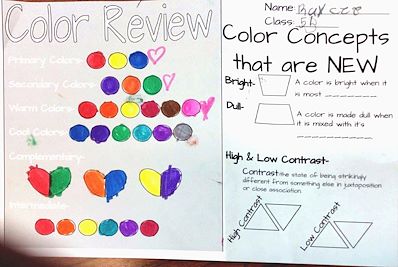 Color Review
Primary Colors-
Secondary Colors-
Warm Colors-
Cool Colors-
Complementary-
Intermediate-
Name:
Class: 5B
Color Concepts
that are NEW
Bright-
A color is bright when it
is most ________
Dull-
A color is made dull when
it is mixed with it's
____________.
High & Low Contrast-
Contrast-the state of being strikingly
different from something else in juxtaposition
or close association.
High Contrast
Low Contrast